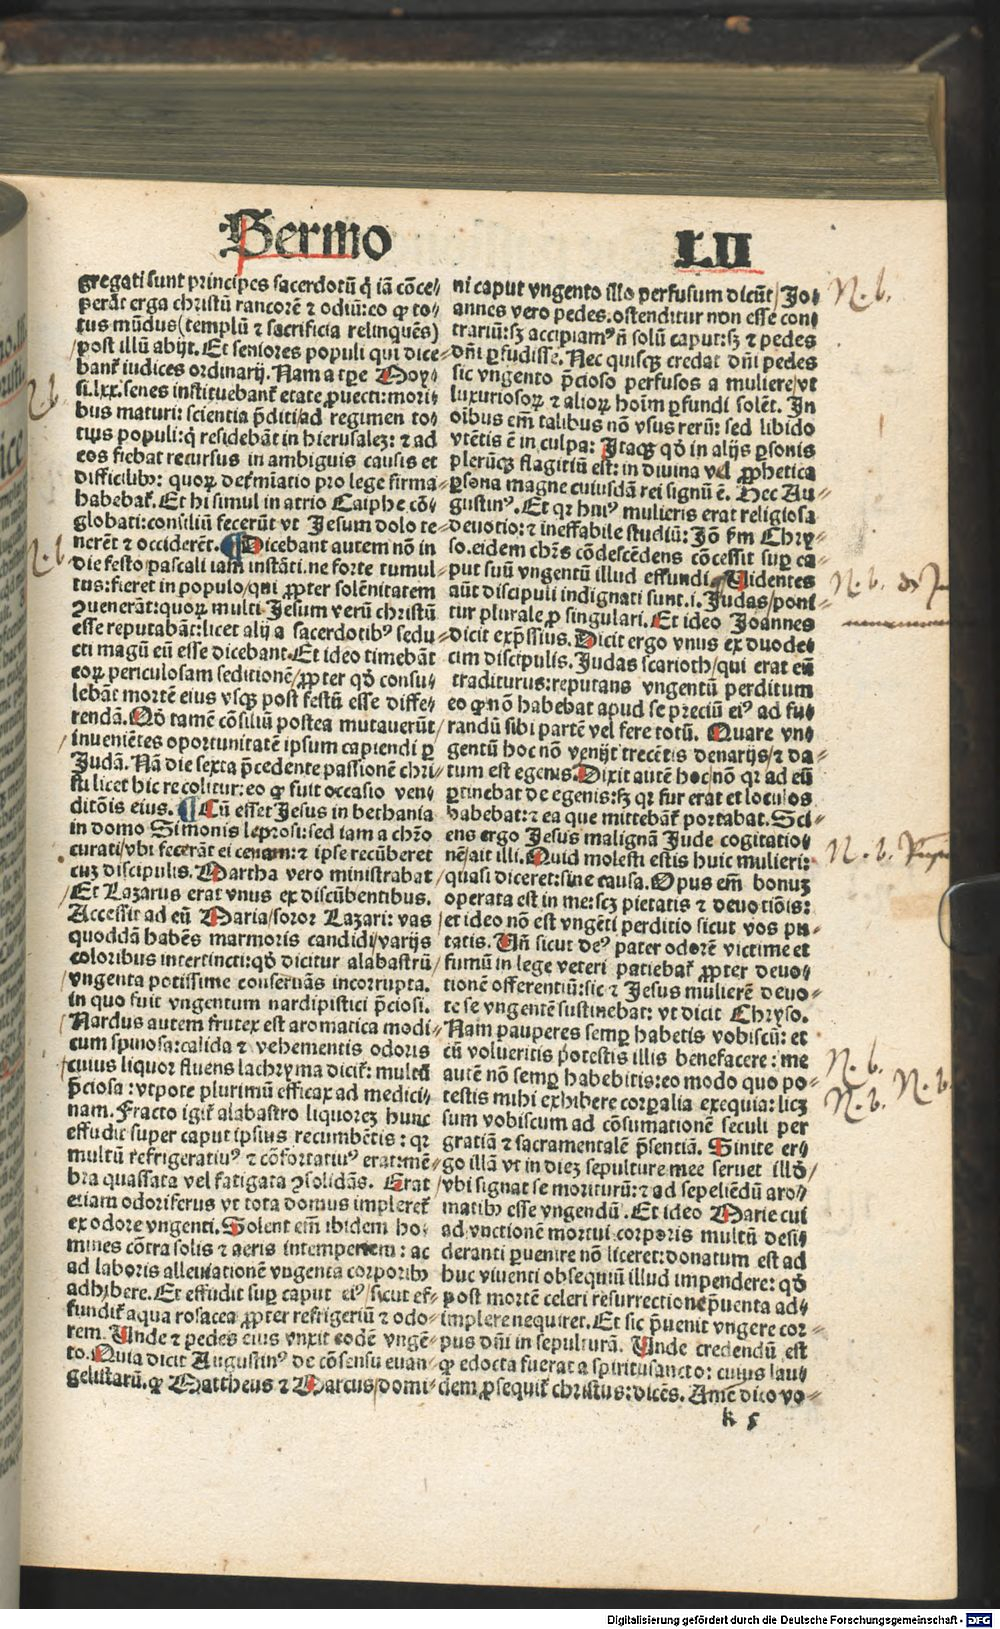 Sermo LII
gregati sunt principes sacerdotū q̇ iā cōce⸗
perāt erga christū rancorē ⁊ odiū: eo ꝙ to⸗
tus mūdus (templū ⁊ sacrificia relinquēs)
post illū abijt. Et seniores populi qui dice⸗
bant᷑ iudices ordinarij. Nam a tꝑe Moy⸗
si .lxx. senes instituebant᷑ etate ꝓuecti: mori⸗
bus maturi: scientia p̄diti/ ad regimen to⸗
tius populi: q̇ residebāt in hierusalez: ⁊ ad
eos fiebat recursus in ambiguis causis et
difficilibꝰ: quoꝝ det᷑miatio pro lege firma⸗
habebat᷑. Et hi simul in atrio Caiphe cō⸗
globati: consiliū fecerūt vt Jesum dolo te⸗
nerēt ⁊ occiderēt. ¶ Dicebant autem nō in
die festo pascali iam instāti. ne forte tumul⸗
tus: fieret in populo/ qui ꝓpter solēnitatem
ꝯuenerāt: quoꝝ multi Jesum verū christū
esse reputabāt: licet alij a sacerdotibꝰ sedu⸗
cti magū eū esse dicebant. Et ideo timebāt
eoꝝ periculosam seditionē/ ꝓpter qḋ consu⸗
lebāt mortē eius vsqꝫ post festū esse diffe⸗
rendā. Qḋ tamē cōsiliū postea mutauerūt
inueniētes oportunitatē ipsum capiendi ꝑ
Judā. Nā die sexta p̄cedente passionē chri⸗
sti licet hic recolitur: eo ꝙ fuit occasio ven⸗
ditōis eius. ¶ Cū esset Jesus in bethania
in domo Simonis leprosi: sed iam a chr̄o
curati/ vbi fecerāt ei cenam: ⁊ ipse recūberet
cuꝫ discipulis. Martha vero ministrabat
Et Lazarus erat vnus ex discūbentibus.
Accessit ad eū Maria/ soror Lazari: vas
quoddā habēs marmoris candidi/ varijs
coloribus intertincti: qḋ dicitur alabastrū
vngenta potissime conseruās incorrupta.
in quo fuit vngentum nardipistici p̄ciosi.
Nardus autem frutex est aromatica modi⸗
cum spinosa: calida ⁊ vehementis odoris
cuius liquor fluens lachryma dicit᷑: multū
p̄ciosa: vtpote plurimū efficax ad medici⸗
nam. Fracto igit᷑ alabastro liquoreꝫ hunc
effudit super caput ipsius recumbētis: qꝛ
multū refrigeratiuꝰ ⁊ cōfortatiuꝰ erat: mē⸗
bra quassata vel fatigata ꝯsolidās. Erat
etiam odoriferus vt tota domus impleret᷑
ex odore vngenti. Solent eīm ibidem ho⸗
mines cōtra solis ⁊ aeris intemperiem: ac
ad laboris alleuiationē vngenta corporibꝰ
adhibere. Et effudit suꝑ caput eiꝰ/ sicut ef⸗
fundit᷑ aqua rosacea ꝓpter refrigeriū ⁊ odo⸗
rem. Unde ⁊ pedes eius vnxit eodē vngē⸗
to. Quia dicit Augustinꝰ de cōsensu euan⸗
gelistarū. ꝙ Mattheus ⁊ Marcus/ domi⸗
ni caput vngento illo perfusum dicūt/ Jo⸗
annes vero pedes. ostenditur non esse con
trariū: sꝫ accipiamꝰ n̄ solū caput: sꝫ ⁊ pedes
dn̄i ꝑfudisse. Nec quisqꝫ credat dn̄i pedes
sic vngento p̄cioso perfusos a muliere/ vt
luxuriosoꝝ ⁊ alioꝝ hoīm ꝑfundi solēt. In
oībus em̄ talibus nō vsus rerū: sed libido
vtētis ē in culpa: Itaqꝫ qḋ in alijs ꝑsonis
plerūqꝫ flagitiū est: in diuina vel ꝓphetica
ꝑsona magne cuiusdā rei signū ē. Hec Au⸗
gustinꝰ. Et qꝛ huiꝰ mulieris erat religiosa
deuotio: ⁊ ineffabile studiū: Jō ẜm Chry⸗
so. eidem chr̄s cōdescēdens cōcessit suꝑ ca⸗
put suū vngentū illud effundi. Uidentes
aūt discipuli indignati sunt .i. Judas/ poni⸗
tur plurale ꝓ singulari. Et ideo Joannes
dicit exp̄ssius. Dicit ergo vnus ex duode⸗
cim discipulis. Judas scarioth/ qui erat eū
traditurus: reputans vngentū perditum
eo ꝙ nō habebat apud se preciū eiꝰ ad fu⸗
randū sibi partē vel fere totū. Quare vn⸗
gentū hoc nō venijt trecētis denarijs/ ⁊ da⸗
tum est egenis. Dixit autē hoc/ nō qꝛ ad eū
ꝑtinebat de egenis: sꝫ qꝛ fur erat et loculos
habebat: ⁊ ea que mittebāt᷑ portabat. Sci⸗
ens ergo Jesus malignā Jude cogitatio⸗
nē/ ait illi. Quid molesti estis huic mulieri:
quasi diceret: sine causa. Opus em̄ bonuꝫ
operata est in me: scꝫ pietatis ⁊ deuotiōis:
et ideo nō est vngēti perditio sicut vos pu⸗
tatis. Un̄ sicut deꝰ pater odorē victime et
fumū in lege veteri patiebat᷑ ꝓpter deuo⸗
tionē offerentiū: sic ⁊ Jesus mulierē deuo⸗
te se vngentē sustinebat: vt dicit Chryso.
Nam pauperes semꝑ habetis vobiscū: et
cū volueritis potestis illis benefacere: me
autē nō semꝑ habebitis: eo modo quo po⸗
testis mihi exhibere corꝑalia exequia: licꝫ
sum vobiscum ad cōsumationē seculi per
gratiā ⁊ sacramentalē p̄sentiā. Sinite er⸗
go illā vt in dieꝫ sepulture mee seruet illḋ/
vbi signat se moriturū: ⁊ ad sepeliēdū aro⸗
matibꝰ esse vngendū. Et ideo Marie cui
ad vnctionē mortui corporis multū desi⸗
deranti ꝑuenire nō liceret: donatum est ad
huc viuenti obsequiū illud impendere: qḋ
post mortē celeri resurrectione p̄uenta ad⸗
implere nequiret. Et sic p̄uenit vngere cor⸗
pus dn̄i in sepulturā. Unde credendū est
ꝙ edocta fuerat a spiritusancto: cuius lau⸗
dem ꝓsequit᷑ christus: dicēs. Amē dico vo⸗
k 5
N. b.
N. b.
N. b.
N. b.
N. b.
N. b.
N. b.
N. b.
Digitalisierung gefördert durch die Deutsche Forschungsgemeinschaft - DFG